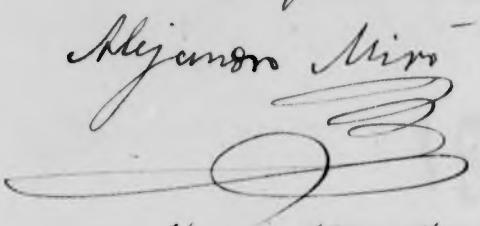 Alejandro Miró